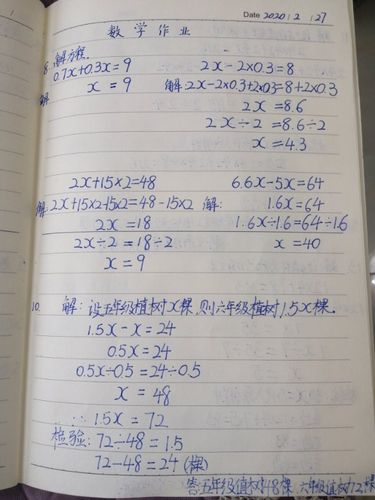 Date 2020 / 2 / 27
数学作业
8. 解方程.
0.7x+0.3x=9
解 x=9
2x-2×0.3=8
解 2x-2×0.3+2×0.3=8+2×0.3
2x=8.6
2x÷2=8.6÷2
x=4.3
2x+15×2=48
解: 2x+15×2-15×2=48-15×2
2x=18
2x÷2=18÷2
x=9
6.6x-5x=64
解: 1.6x=64
1.6x÷1.6=64÷1.6
x=40
10. 解: 设五年级植树x棵,则六年级植树1.5x棵.
1.5x-x=24
0.5x=24
0.5x÷0.5=24÷0.5
x=48
∴1.5x=72
检验: 72÷48=1.5
72-48=24(棵)
答:五年级植树48棵,六年级植树72棵